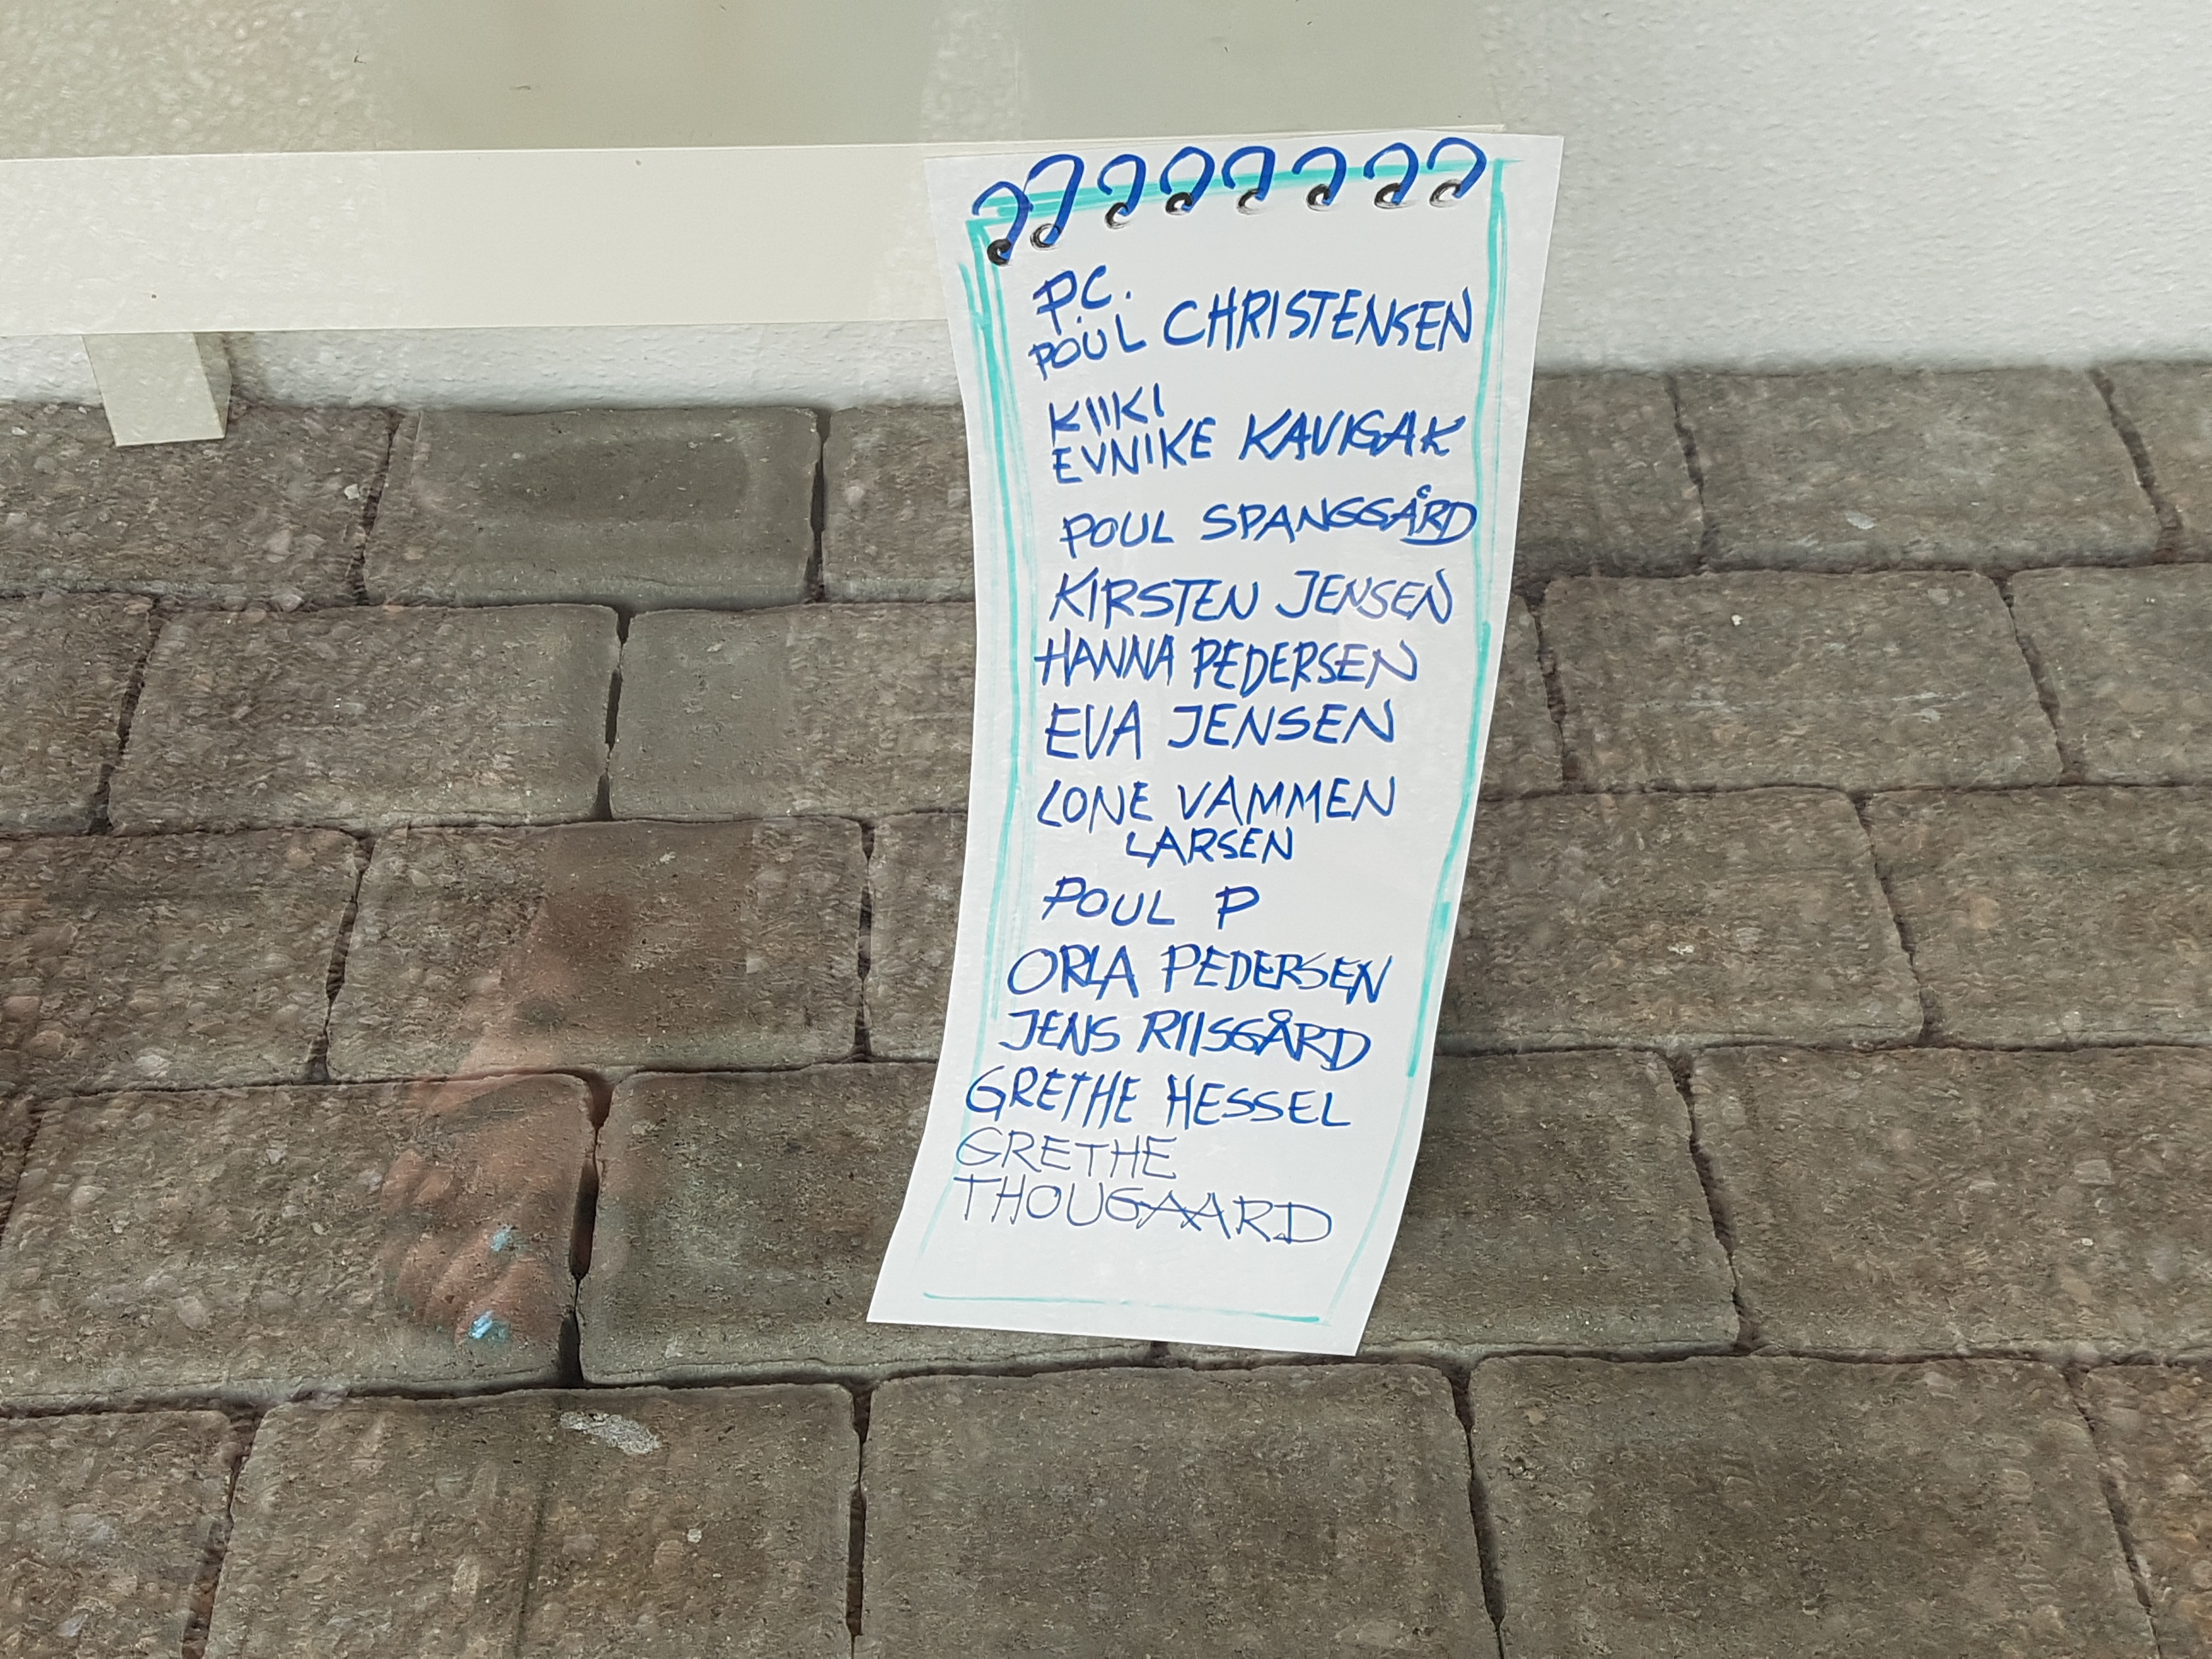 P.C.
POUL CHRISTENSEN
KIIKI
EVNIKE KAVIGAK
POUL SPANGGÅRD
KIRSTEN JENSEN
HANNA PEDERSEN
EVA JENSEN
LONE VAMMEN
LARSEN
POUL P
ORLA PEDERSEN
JENS RIISGÅRD
GRETHE HESSEL
GRETHE
THOUGAARD